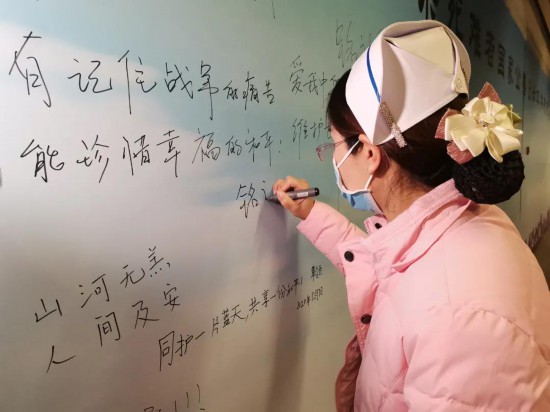 有记住战争的痛苦
能珍惜幸福的和平，维护
爱我中
铭
铭记
山河无恙
人间及安
同护一片蓝天，共享一份和平！
死难者国家公
！！！